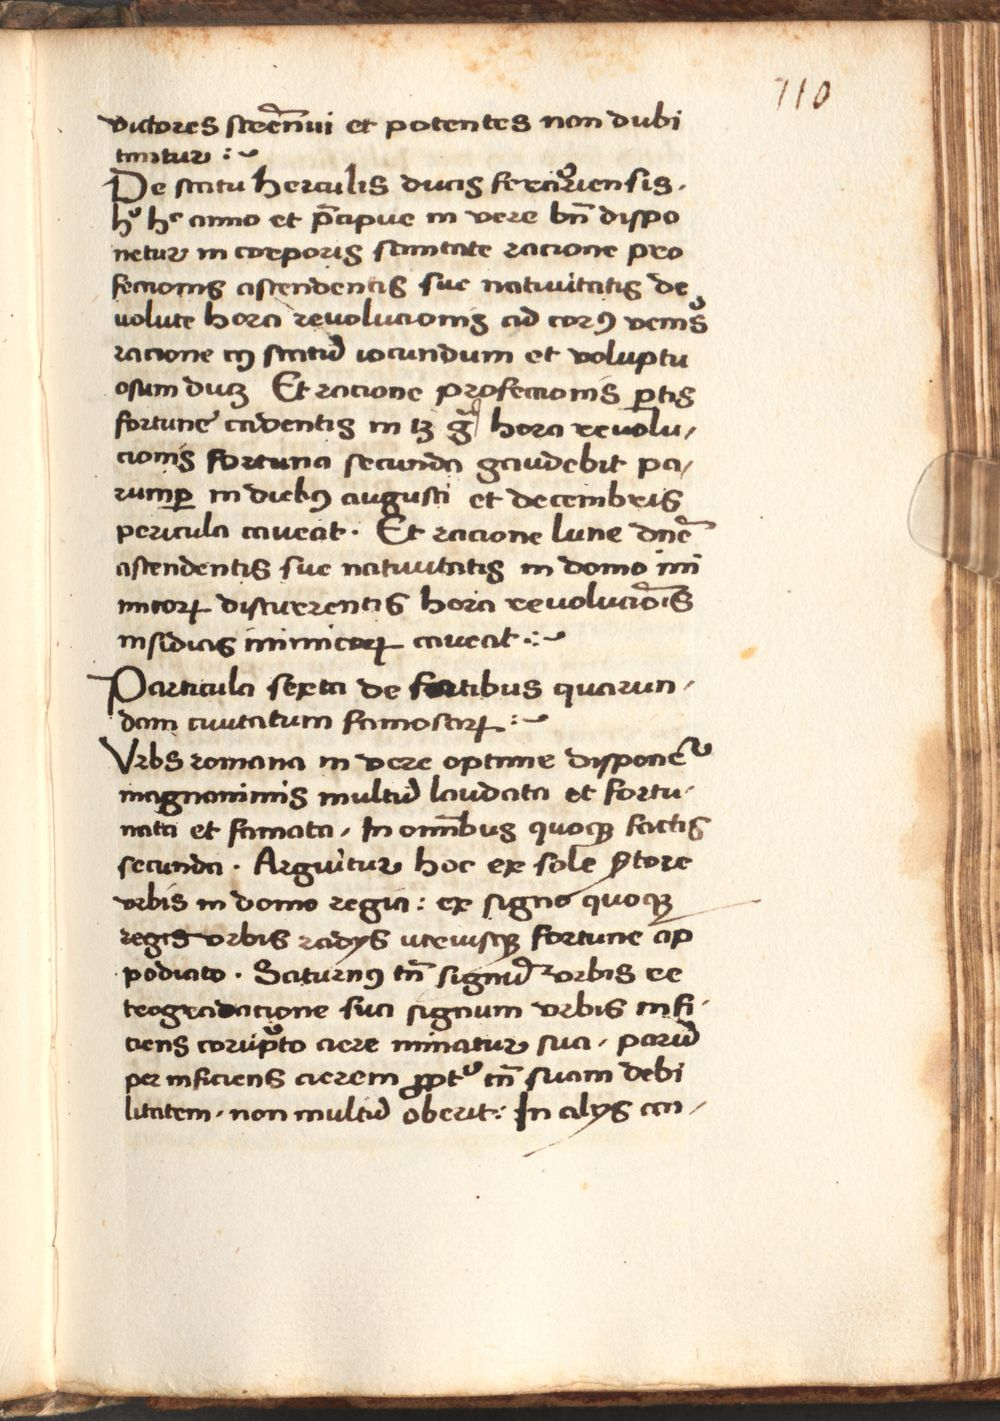 710
victores stre͞nui et potentes non dubi
tantur :~
De statu herculis ducis ferrariensis.
hͦ hᵉ anno et p͞cipue in vere bn͞ dispo
netur in corporis sanitate racione pro
fectionis ascendentis sue nativitatis de
uolute hora revolucionis ad corꝰ vene͛s
racione cꝰ statū iocundum et voluptu
osum ducꝫ Et racione profectionis ꝑtis
fortune cadentis in tꝫ g̃ hora revolu/
cionis fortuna secunda gaudebit pa/
rumꝑ in diebꝰ augusti et decembris
pericula caveat. Et racione lune dn͞e
ascendentis sue nativitatis in domo ini
micoꝝ discurrentis hora revolucio͞is
insidias inimicoꝝ caveat :~
Particula sexta de sortibus quarun/
dam civitatum famosaꝝ :~
Urbs romana in vere optime disponetᷣ
magnanimis multū laudata et fortu/
nata et famata / In om͞ibus quoqꝫ factis
secunda . Arguitur hoc ex sole ꝯtore
vrbis in domo regia : ex signo quoqꝫ
regis vrbis radijs utriusqꝫ fortune ap
podiato . Saturnꝰ tn͞ signū vrbis re
trogradacione sua signum vrbis infi/
ciens corrupto aere minatur sua / parū
per inficiens aerem ꝓptᷣ tn͞ suam debi
litatem / non multū oberit : In alijs an/